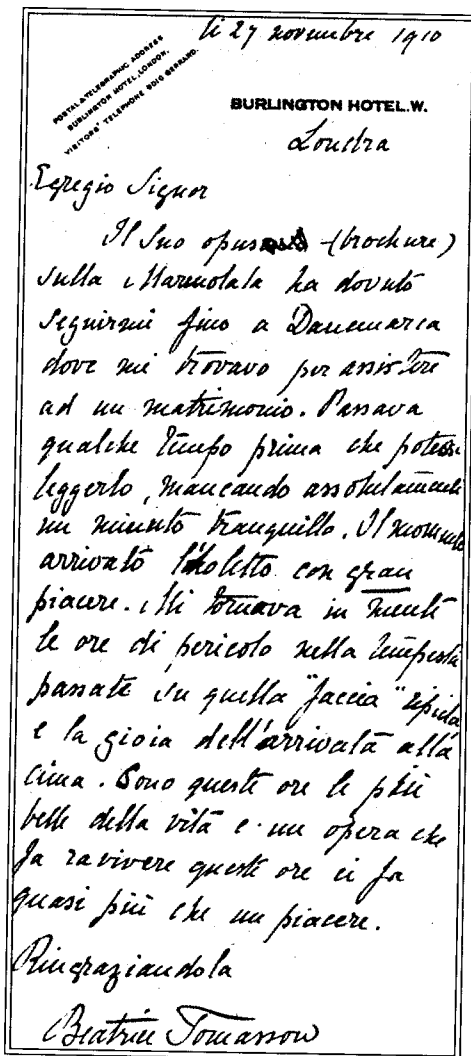 li 27 novembre 1910
POSTAL & TELEGRAPHIC ADDRESS
BURLINGTON HOTEL, LONDON.
VISITORS' TELEPHONE GERRARD.
BURLINGTON HOTEL. W.
Londra
Egregio Signor
Il Suo (brochure)
sulla Marmolata ha dovuto
seguirmi fino a Danemarca
dove mi trovavo per assistere
ad un matrimonio. Passava
qualche tempo prima che potessi
leggerlo, mancando assolutamente
un minuto tranquillo. Il momento
arrivato l'ho letto con gran
piacere. Mi tornava in mente
le ore di pericolo nella tempesta
passate su quella "faccia" ripida
e la gioia dell'arrivata alla
cima. Sono queste ore le più
belle della vita e un opera che
fa ravivere queste ore ci fa
quasi più che un piacere.
Ringraziandola
Beatrice Tomasson